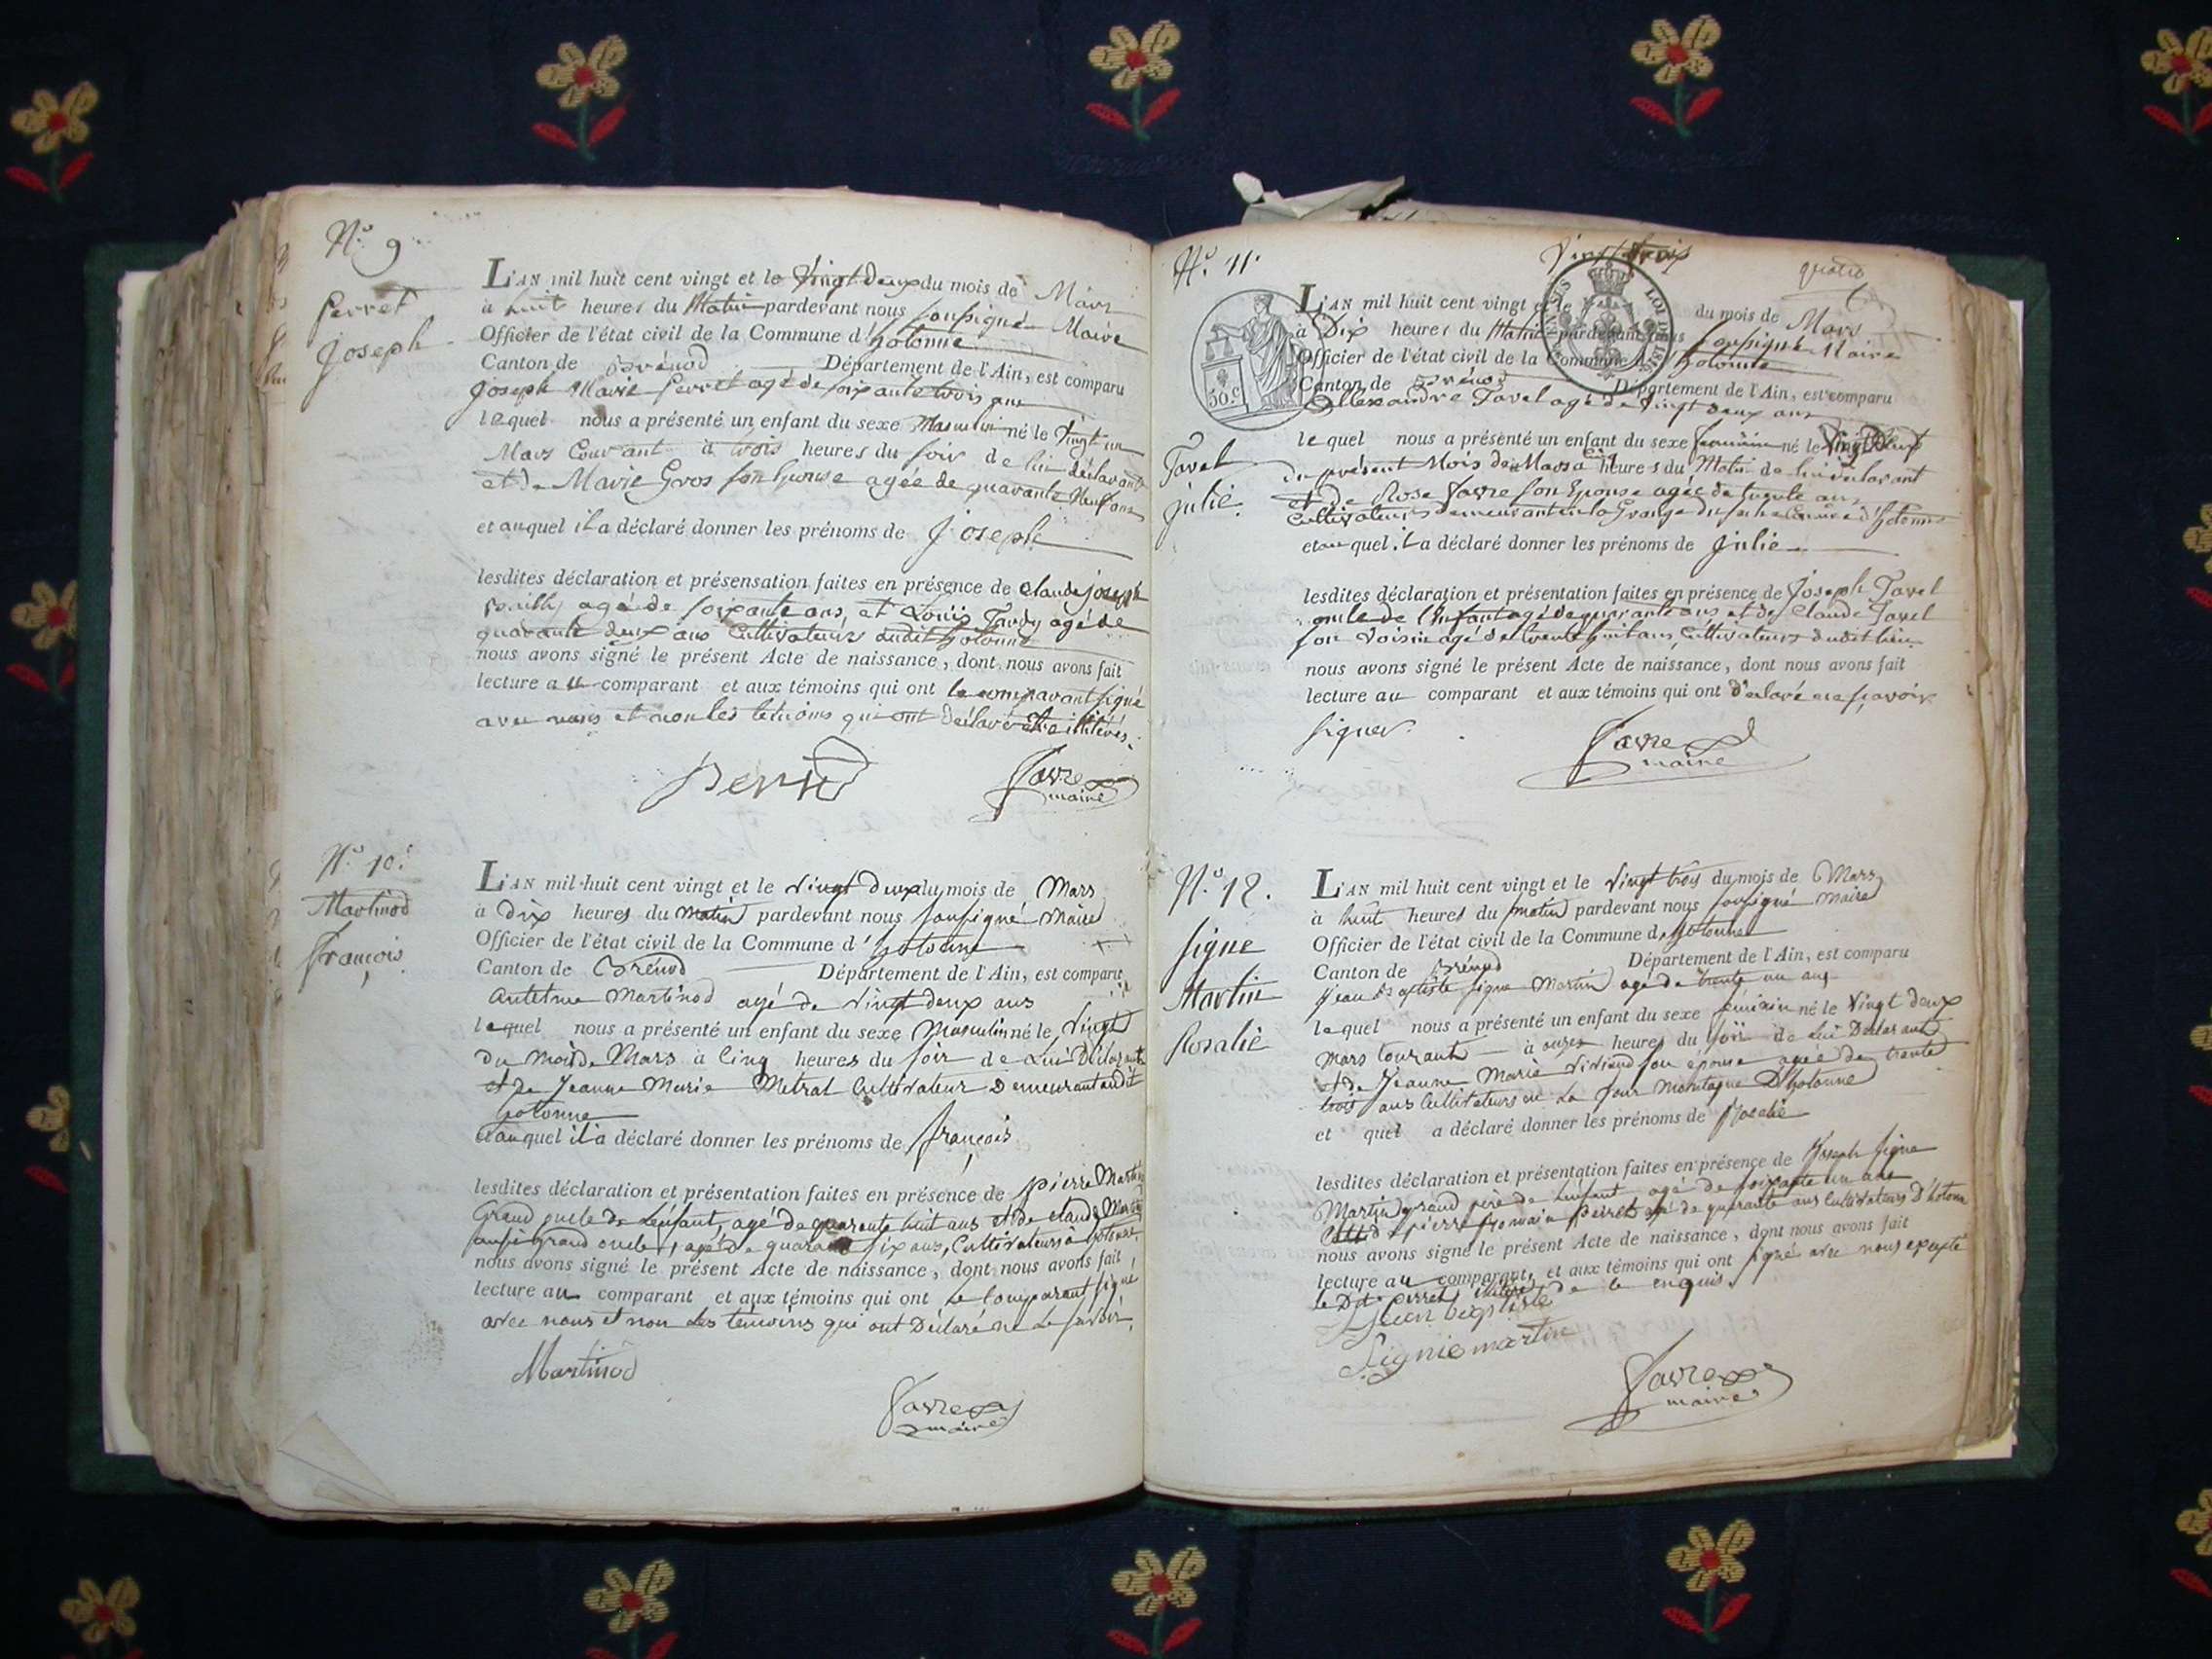 N.o 9
Perret
Joseph
L'AN mil huit cent vingt et le Vingt deux du mois de Mars
à huit heures du Matin pardevant nous soussigné Maire
Officier de l'état civil de la Commune d'hotonne
Canton de Brénod Département de l'Ain, est comparu
Joseph Marie Perret agé de soixante trois ans
lequel nous a présenté un enfant du sexe Masculin né le Vingt un
Mars Courant à trois heures du soir de lui déclarant
et de Marie Gros son Epouse agée de quarante Neuf ans
et auquel il a déclaré donner les prénoms de Joseph
lesdites déclaration et présensation faites en présence de Claude joseph
agé de soixante ans, et Louis Tardy agé de
quarante deux ans Cultivateurs audit hotonne
nous avons signé le présent Acte de naissance, dont nous avons fait
lecture au comparant et aux témoins qui ont le comparant signé
avec nous et non les temoins qui ont déclaré être illitérés.
Perret
Favre
maire
N.o 10.
Martinod
François
L'AN mil huit cent vingt et le vingt deux du mois de Mars
à Dix heures du matin pardevant nous soussigné Maire
Officier de l'état civil de la Commune d'hotonne
Canton de Brénod Département de l'Ain, est comparu
Antelme Martinod agé de vingt deux ans
lequel nous a présenté un enfant du sexe Masculin né le Vingt
du mois de Mars à Cinq heures du soir de Lui Déclarant
et de Jeanne Marie Metral Cultivateur Demeurant audit
hotonne
et auquel il a déclaré donner les prénoms de François
lesdites déclaration et présentation faites en présence de pierre Martinod
Grand oncle de Lenfant, agé de quarante huit ans et de Claude Martinod
aussi grand oncle, agé de quarante six ans, Cultivateurs à hotonne
nous avons signé le présent Acte de naissance, dont nous avons fait
lecture au comparant et aux témoins qui ont Le Comparant signé
avec nous et non Les temoins qui ont Déclaré ne Le savoir.
Martinod
Favre
maire
N.o 11.
Vingt trois
50.c
LOI DE 1816
Tavel
julie
L'AN mil huit cent vingt et le du mois de Mars
à Dix heures du Matin pardevant nous soussigné Maire
Officier de l'état civil de la Commune d'hotonne
Canton de Brénod Département de l'Ain, est comparu
Allexandre Tavel agé de Vingt deux ans
lequel nous a présenté un enfant du sexe feminin né le Vingt Deux
du présent Mois de Mars à Cinq heures du Matin de lui déclarant
et de Rose Favre son Epouse agée de trente ans
Cultivateurs demeurant en la Grange du Commune d'hotonne
et au quel il a déclaré donner les prénoms de Julie
lesdites déclaration et présentation faites en présence de Joseph Tavel
oncle de l'Enfant agé de quarante ans et de Claude Tavel
son Voisin agé de trente huit ans, Cultivateurs dudit lieu
nous avons signé le présent Acte de naissance, dont nous avons fait
lecture au comparant et aux témoins qui ont déclaré ne sçavoir
signer.
Favre
maire
N.o 12.
Signe
Martin
Rosalie
L'AN mil huit cent vingt et le vingt trois du mois de Mars
à huit heures du matin pardevant nous soussigné Maire
Officier de l'état civil de la Commune d'hotonne
Canton de Brénod Département de l'Ain, est comparu
Jean Baptiste signe Martin agé de trente un ans
lequel nous a présenté un enfant du sexe feminin né le Vingt deux
mars Courant à onze heures du soir de Lui Déclarant
et de Jeanne Marie Viviand son épouse agée de trente
trois ans Cultivateurs en La Montagne D'hotonne
et quel a déclaré donner les prénoms de Rosalie
lesdites déclaration et présentation faites en présence de Joseph Signe
Martin grand père de Lenfant agé de soixante un ans
et de pierre Romain perret agé de quarante ans Cultivateurs D'hotonne
nous avons signé le présent Acte de naissance, dont nous avons fait
lecture au comparant, et aux témoins qui ont signé avec nous excepté
le Dit perret illitéré de ce enquis.
Jean baptiste
Signie martin
Favre
maire